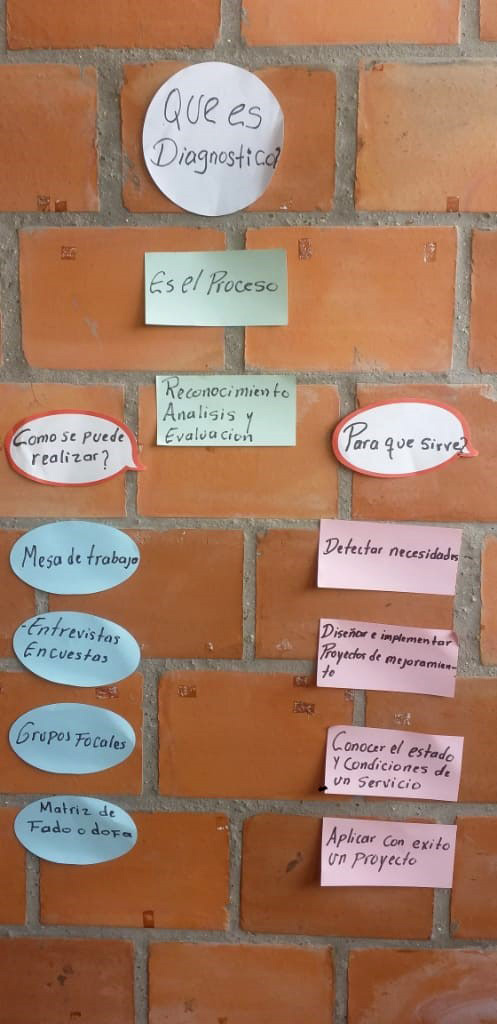 Que es
Diagnostico?
Es el Proceso
Reconocimiento
Analisis y
Evaluacion
Como se puede
realizar?
Mesa de trabajo
-Entrevistas
Encuestas
Grupos Focales
Matriz de
Fado o dofa
Para que sirve?
Detectar necesidades
Diseñar e implementar
Proyectos de mejoramien-
to
Conocer el estado
y Condiciones de
un Servicio
Aplicar con exito
un Proyecto